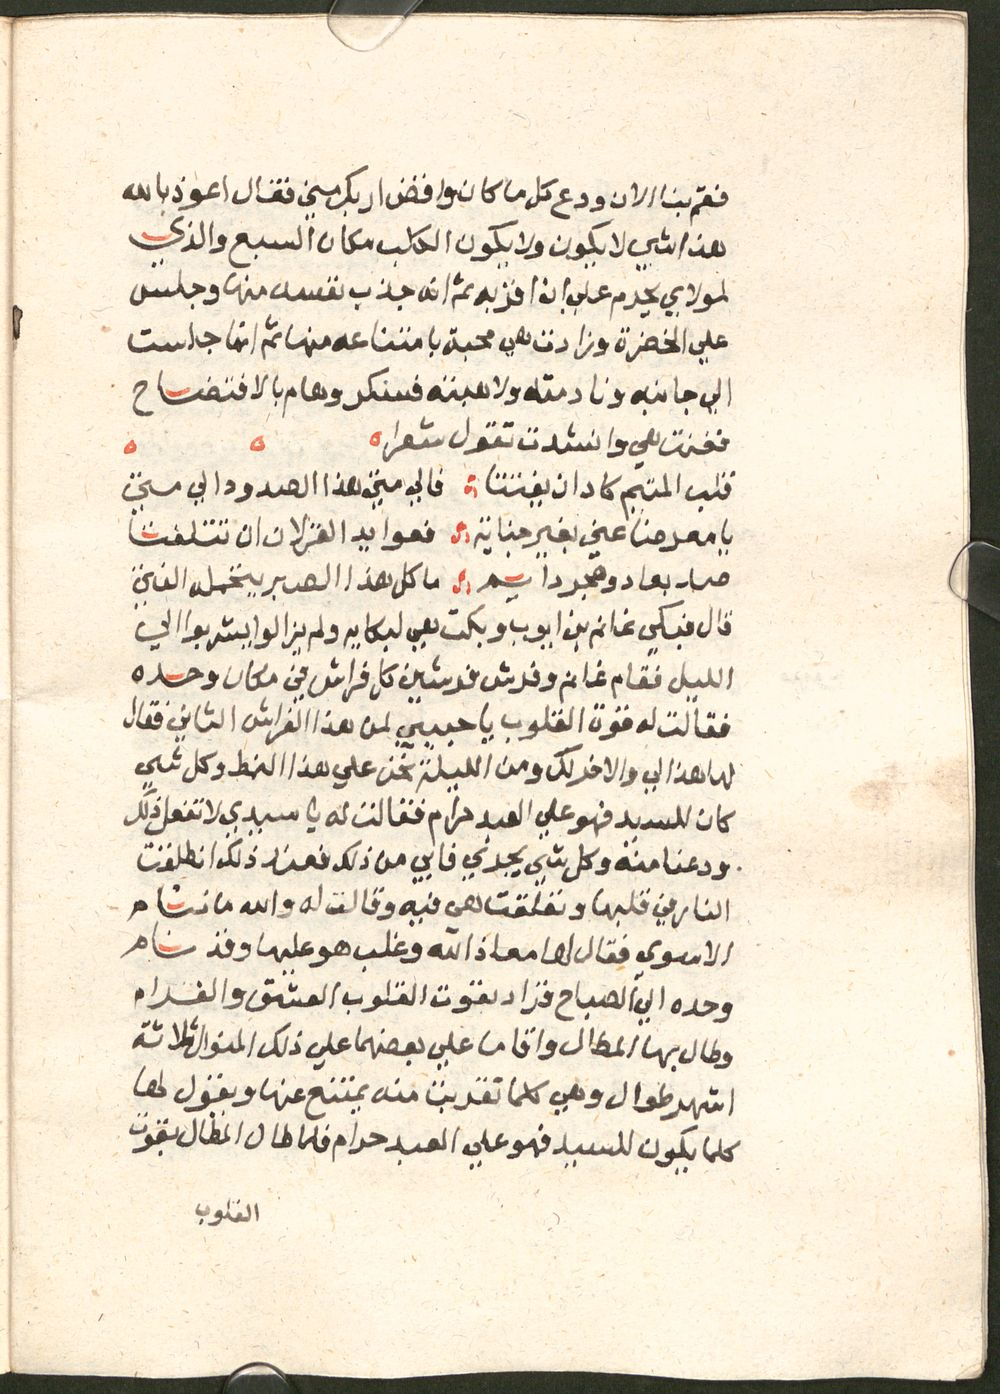 فقم بنا الان ودع كل ما كان واقض اربك مني فقال اعوذ بالله
هذا شي لا يكون ولا يكون الكلب مكان السبع والذي
لمولاي يحرم علي ان اقربه ثم انه جذب نفسه منها وجلس
علي الحضرة وزادت هي محبة بامتناعه منها ثم انها جلست
الي جانبه ونادمته ولاعبته فسكر وهام بالافتضاح
فغنت هي وانشدت تقول شعرا
قلب المتيم كاد ان يفتتنا فالي متي هذا الصدود الي متي
يا معرضا عني بغير جناية فعوايد الغزلان ان تتلفتا
صد بعاد وهجر دايم ما كل هذا الصبر يحمله الفتي
قال فبكي غانم بن ايوب وبكت هي لبكايه ولم يزالوا يشربوا الي
الليل فقام غانم وفرش فرشين كل فراش في مكان وحده
فقالت له قوة القلوب يا حبيبي لمن هذا الفراش الثاني فقال
لها هذا لي والاخر لك ومن الليلة نحن علي هذا النمط وكل شي
كان للسيد فهو علي العبد حرام فقالت له يا سيدي لا تفعل ذلك
ودعنا منه وكل شي يجري فابي من ذلك فعند ذلك انطلقت
النار في قلبها وتعلقت هي فيه وقالت له والله ما ننام
الا سوي فقال لها معاذ الله وغلب هو عليها وقد نام
وحده الي الصباح فزاد بقوت القلوب العشق والغرام
وطال بها المطال واقاما علي بعضهما علي ذلك المنوال ثلاثة
اشهر طوال وهي كلما تقربت منه يمتنع عنها ويقول لها
كلما يكون للسيد فهو علي العبد حرام فلما طال المطال بقوت
القلوب